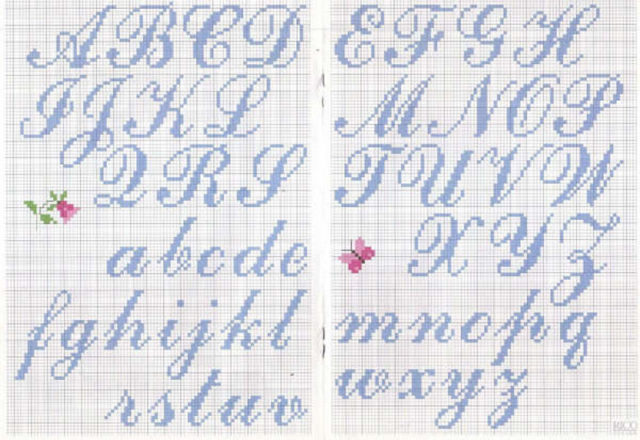 A B C D
I J K L
Q R S
a b c d e
f g h i j k l
r s t u v
E F G H
M N O P
T U V W
X Y Z
m n o p q
w x y z
RICO